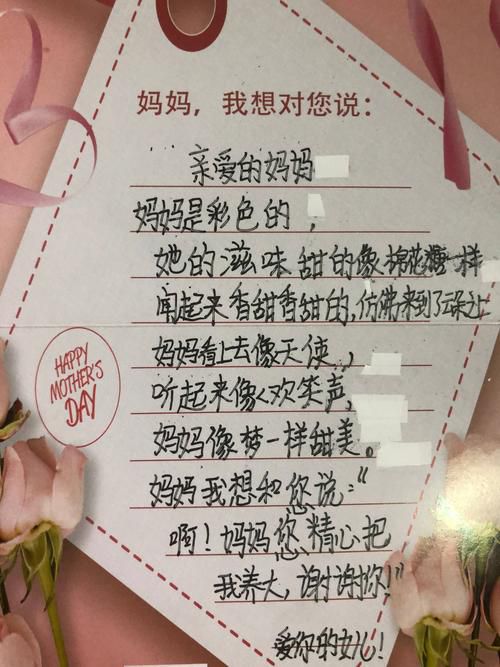 妈妈，我想对您说：
亲爱的妈妈
妈妈是彩色的，
她的滋味甜的像棉花糖一样
闻起来香甜香甜的，仿佛来到了云朵上
妈妈看上去像天使，
听起来像欢笑声，
妈妈像梦一样甜美。
妈妈我想和您说："
啊！妈妈您精心把
我养大，谢谢你！"
爱你的女儿！
HAPPY
MOTHER'S
DAY